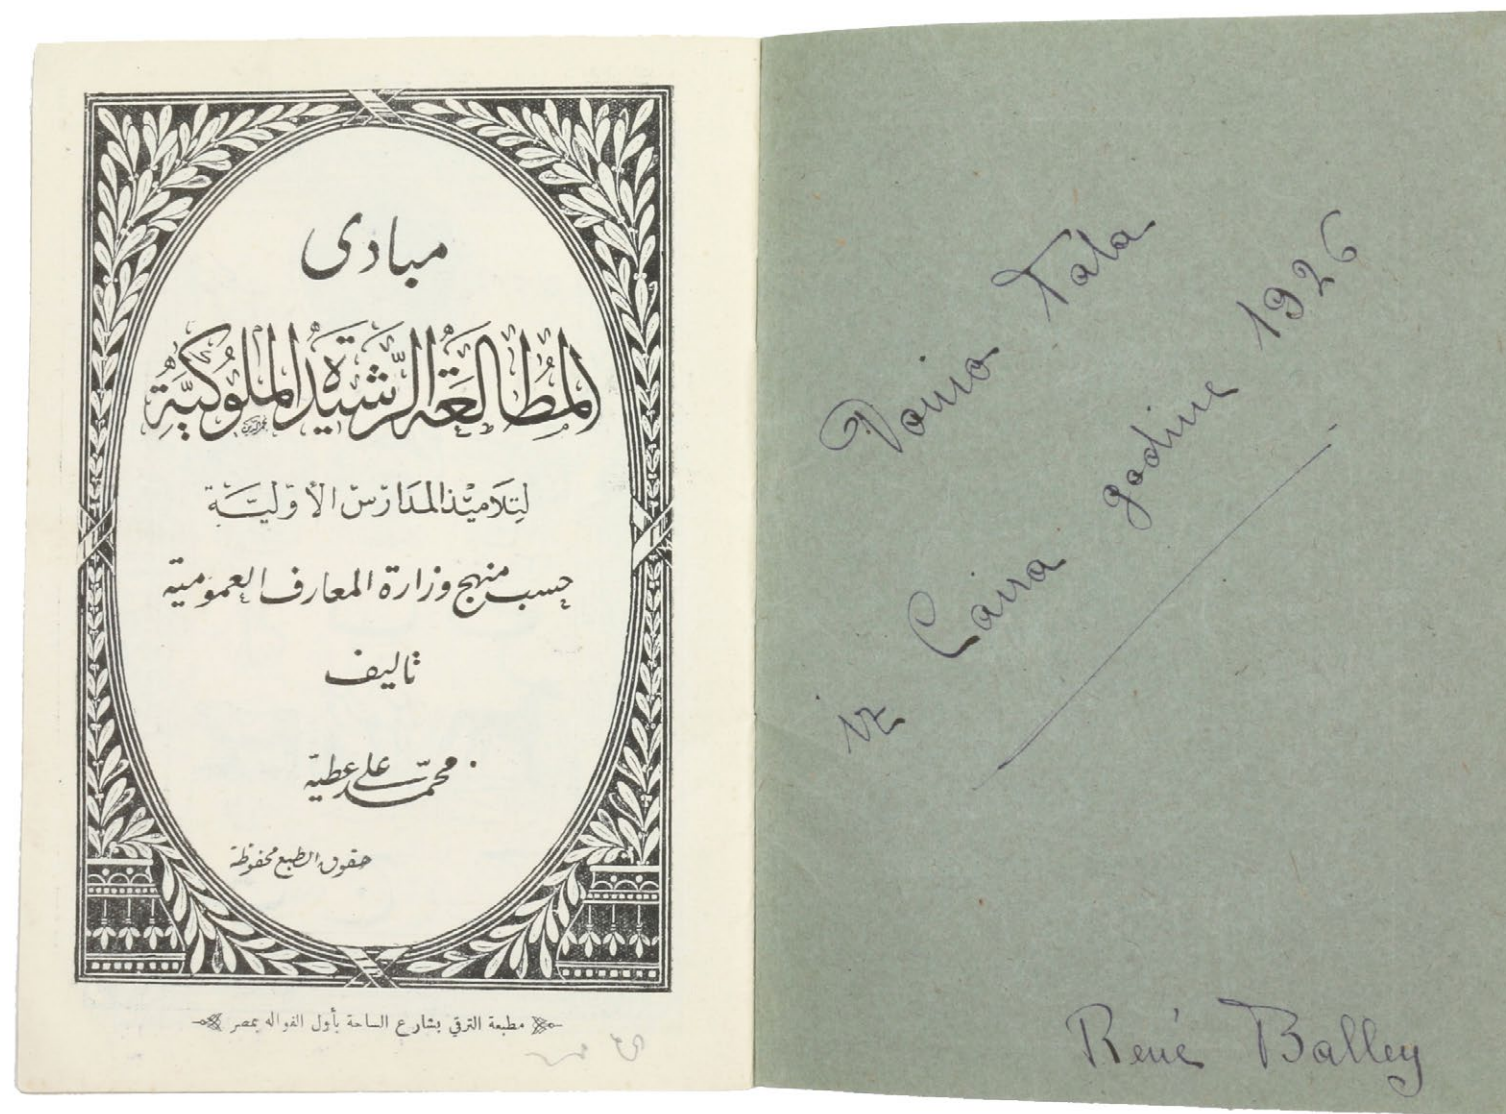 مبادى
المُطالعَة الرَّشيدَة الملُوكيَّة
لِتلاميذ المدَارسْ الأوّليَّة
حسب منهج وزارة المعارف العمومية
تاليف
محمّد على عطية
حقوق الطبع محفوظة
مطبعة الترقي بشارع الساحة بأول الفواله بمصر
Tata
iz Caira godine 1926
René Balley